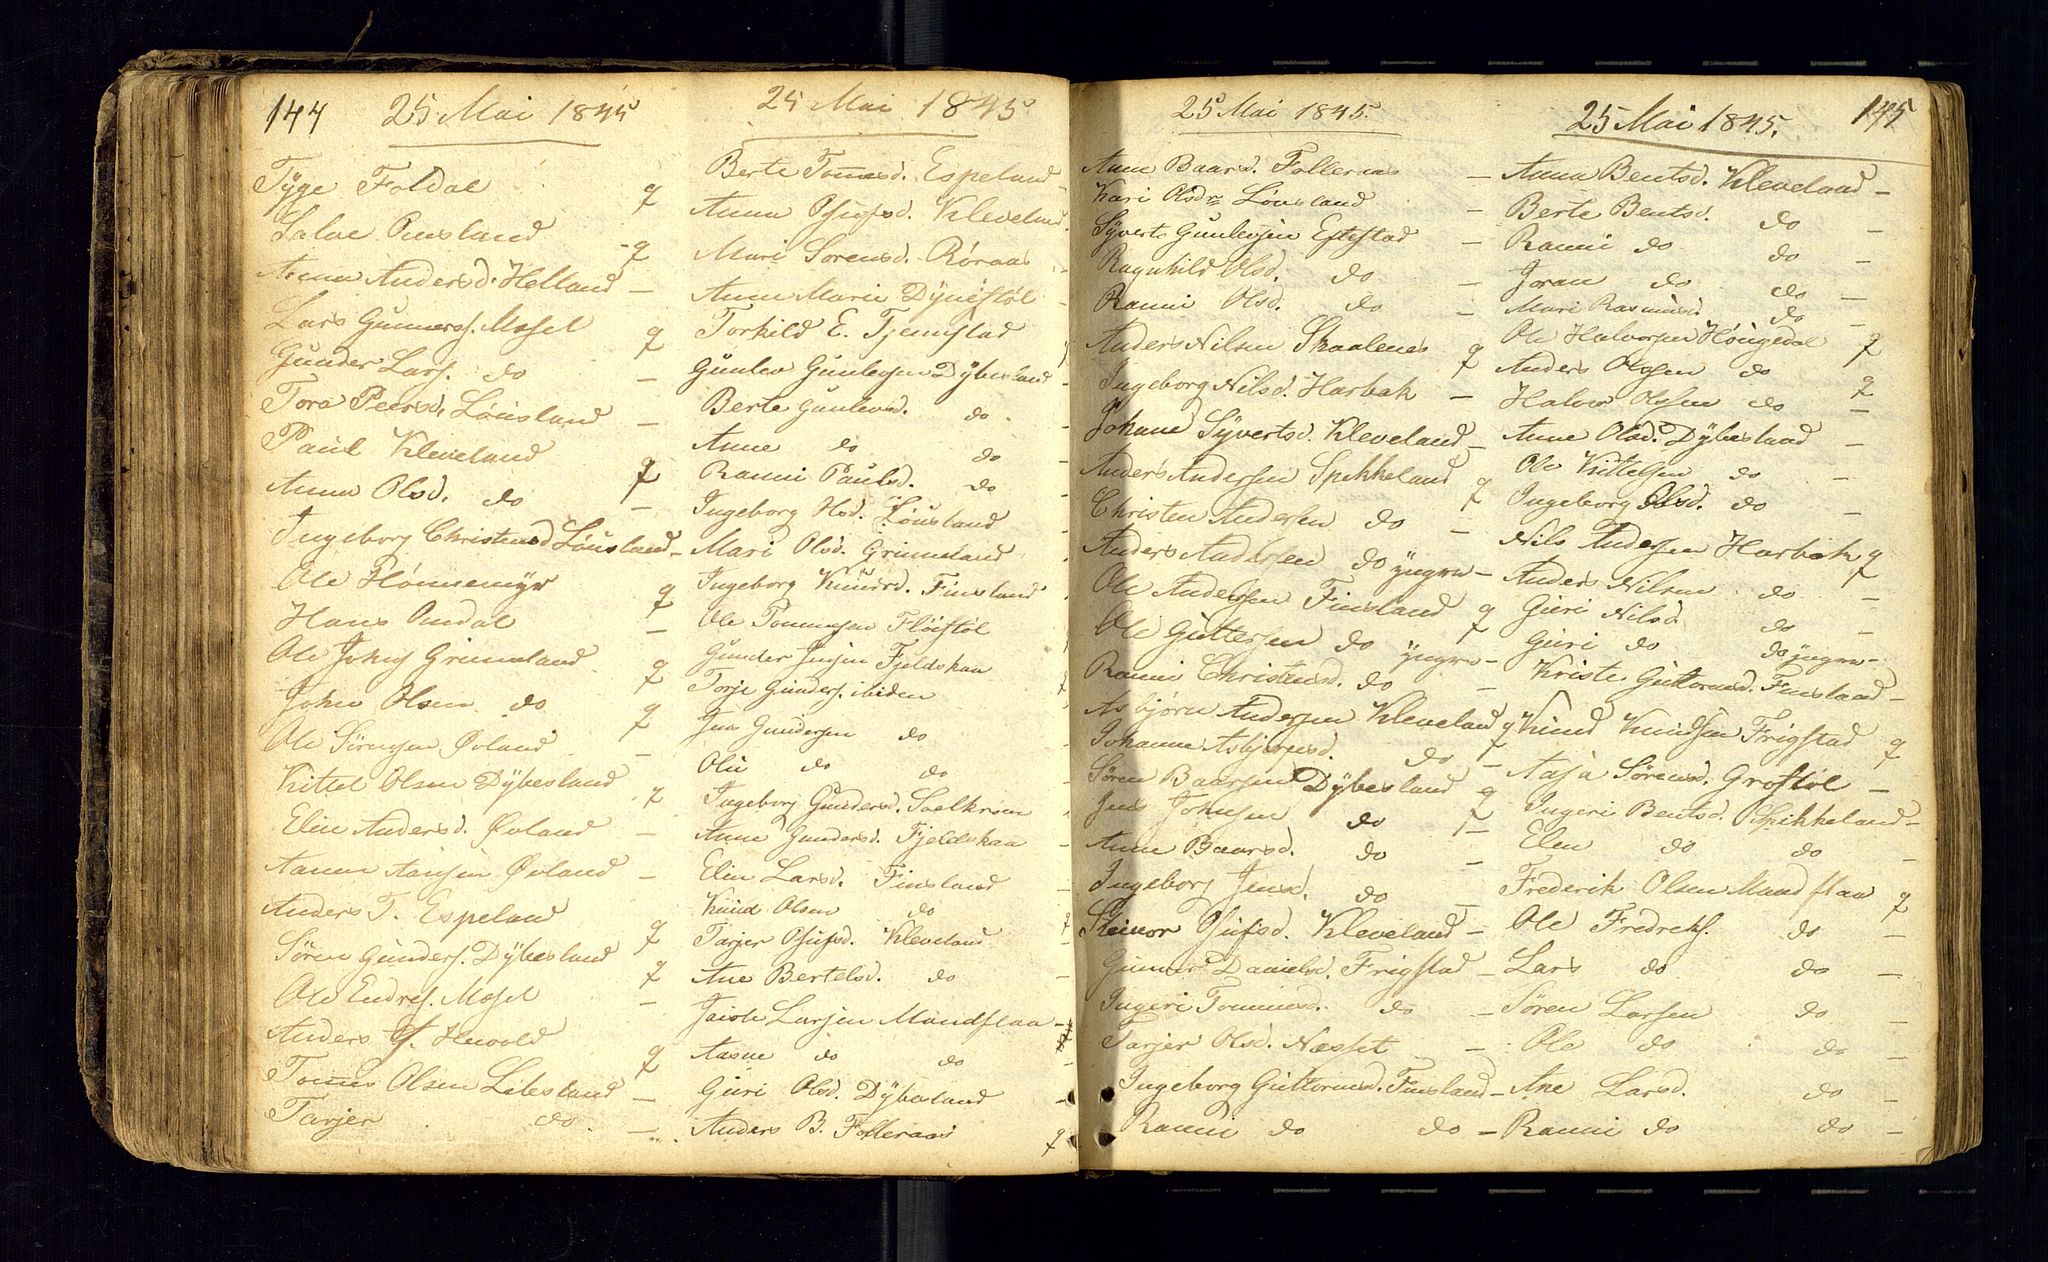 144
25 Mai 1845
Tÿge Foldal q
Salve Ousland - q
Anna Andersd. Helland -
Lars Gunners. Mosel q
Gunder Lars. do -
Tora Peersd. Lönsland -
Paul Kleveland q
Anna Olsd. do -
Ingeborg Christensd Lönsland -
Ole Hönnemÿr q
Hans -
Ole Johns Grimeland q
John Olsen do q
Ole Sörensen Øvland -
Kittel Olsen Dÿbesland q
Elin Andersd. Øvland -
Øvland -
Anders T. Espeland q
Sören Gunders. Dÿbesland q
Ole Endres. Mosel -
Anders q
Tommes Olsen Lilesland -
Tarjer do -
25 Mai 1845
Berte Tommesd. Espeland -
Anna Osufsd. Kleveland
Mari Sorensd. Röraas -
Anne Marie Dÿnestöl -
Torkild E. Tjemstad
Gunlev Gunlevsen Dÿbesland -
Berte Gunlevsd. do -
Anne do do -
Ranni Paulsd. do -
Ingeborg Hsd. Lönsland
Mari Olsd. Grimeland
Ingeborg Knudsd. Finsland
Ole Tommesen Flöistöl
Gunder Jensen Fjeldskaa
Torje Gunders. ibiden
Jens Gundersen do
Oli do do -
Ingeborg Gundersd.
Anne Gundersd. Fjeldskaa -
Elin Larsd. Finsland -
Knud Olsen do q
Tarjer Osufsd. Kleveland -
Ane Bertelsd. do -
Larsen Mandflaa -
Aasne do do -
Guri Olsd. Dÿbesland -
Anders B. Folleraas q
25 Mai 1845.
Anne Baarsd. Folleraas -
Kari Olsdr Lönsland -
Sÿvert Gunlevsen Eftestad -
Ragnhild Olsd. do -
Ranni Olsd. do -
Anders Nilsen Skaalenes q
Ingeborg Nilsd. Harbak -
Johane Sÿvertsd. Kleveland -
Anders Andersen Spikkeland q
Christen Andersen do -
Anders Andersen do ÿngre -
Ole Andersen Finsland q
Ole Guttersen do ÿngre -
Ranni Christensd. do -
Asbjörn Andersen Kleveland q
Johanne Asbjörnsd. do -
Sören Baarsen Dÿbesland q
Jens Johnsen do -
Anne Baarsd. do -
Ingeborg Jensd. do -
Steinor Osufsd. Kleveland -
Gunner Danielsd. Frigstad -
Ingeri Tommesd. do -
Tarjer Olsd. Næsset -
Ingeborg Guttormsd. Finsland -
Ranni do do -
145
25 Mai 1845.
Anna Bentsd. Kleveland -
Berte Bentsd. do -
Ranni do do -
Joran do do -
Mari Rasmusd. do -
Ole Halvorsen Höugedal q
Anders Olsen do q
Halvor Olsen do -
Anne Olsd. Dÿbesland -
Ole Kittelsen do -
Ingeborg Olsd. do -
Nils Andersen Harbak q
Anders Nilsen do -
Gieri Nilsd. do -
Guri do do ÿngre -
Kriste Guttormsd. Finsland -
Knud Knudsen Frigstad q
Aasa Sörensd. Grostöl -
Ingeri Bentsd. Spikkeland -
Elen do do -
Frederik Olsen Mandflaa q
Ole Fredreks. do -
Lars do do -
Sören Larsen do -
Ole do do -
Ane Larsd. do -
Ranni do do -